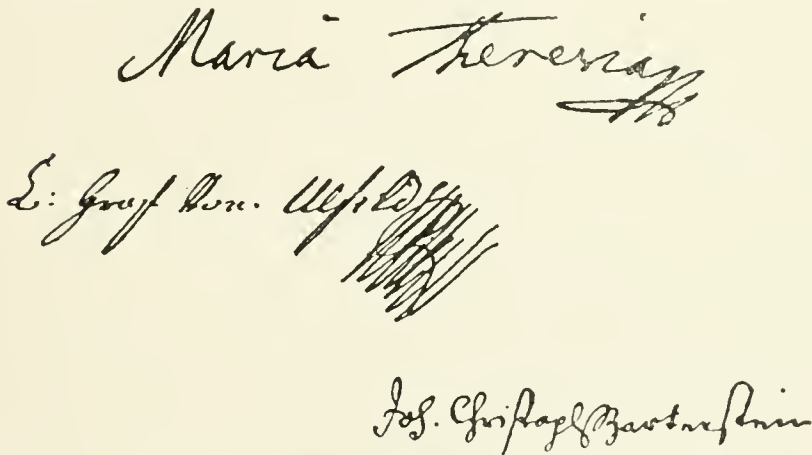 Maria Theresia
C: Graf Von. Ulfeld
Joh. Christoph Bartenstein